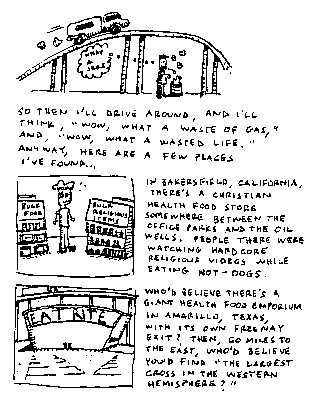 WHAT A MESS
SO THEN I'LL DRIVE AROUND, AND I'LL
THINK, "WOW, WHAT A WASTE OF GAS,"
AND, "WOW, WHAT A WASTED LIFE."
ANYWAY, HERE ARE A FEW PLACES
I'VE FOUND...
BULK
FOOD
BULK
RELIGIOUS
ITEMS
IN BAKERSFIELD, CALIFORNIA,
THERE'S A CHRISTIAN
HEALTH FOOD STORE
SOMEWHERE BETWEEN THE
OFFICE PARKS AND THE OIL
WELLS. PEOPLE THERE WERE
WATCHING HARDCORE
RELIGIOUS VIDEOS WHILE
EATING NOT-DOGS.
EAT NITE
WHO'D BELIEVE THERE'S A
GIANT HEALTH FOOD EMPORIUM
IN AMARILLO, TEXAS,
WITH ITS OWN FREEWAY
EXIT? THEN, GO MILES TO
THE EAST, WHO'D BELIEVE
YOU'D FIND "THE LARGEST
CROSS IN THE WESTERN
HEMISPHERE?"